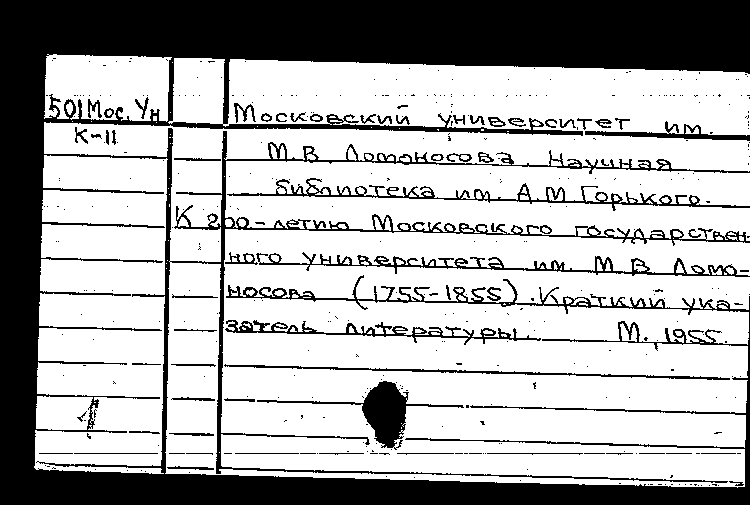 501 Мос. Ун Московский университет им.
К-11
М.В. Ломоносова. Научная
библиотека им. А.М Горького.
К 200-летию Московского государствен
ного университета им. М В Ломо-
носова (1755-1855). Краткий ука-
затель литературы. М., 1955.
1